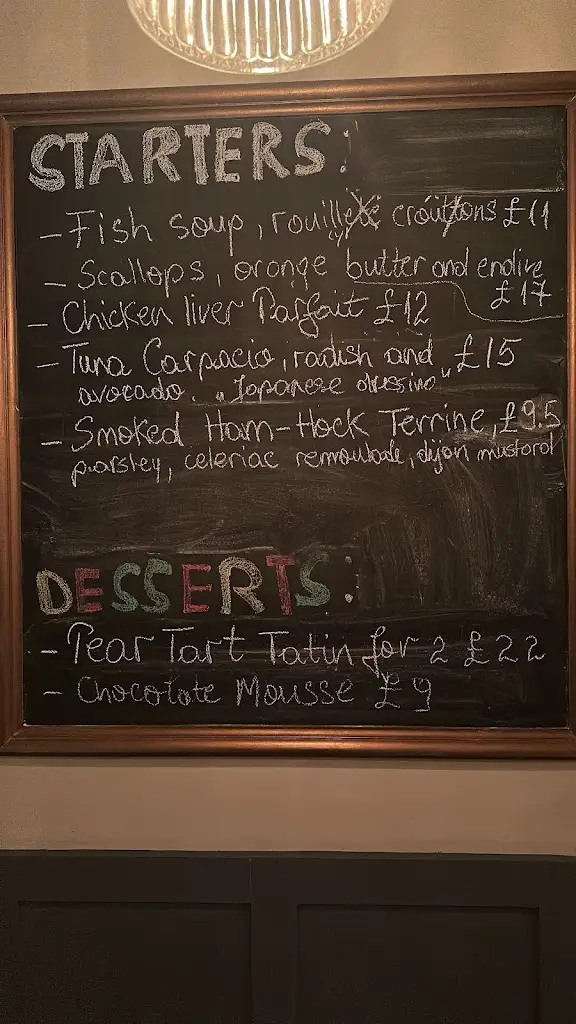 STARTERS:
- Fish soup, rouille croûtons £11
- Scallops, orange butter and endive
£17
- Chicken liver Parfait £12
- Tuna Carpacio, radish and £15
avocado. "Japanese dressino"
- Smoked Ham-Hock Terrine, £9.5
parsley, celeriac remoulade, dijon mustard
DESSERTS:
- Pear Tart Tatin for 2 £22
- Chocolate Mousse £9